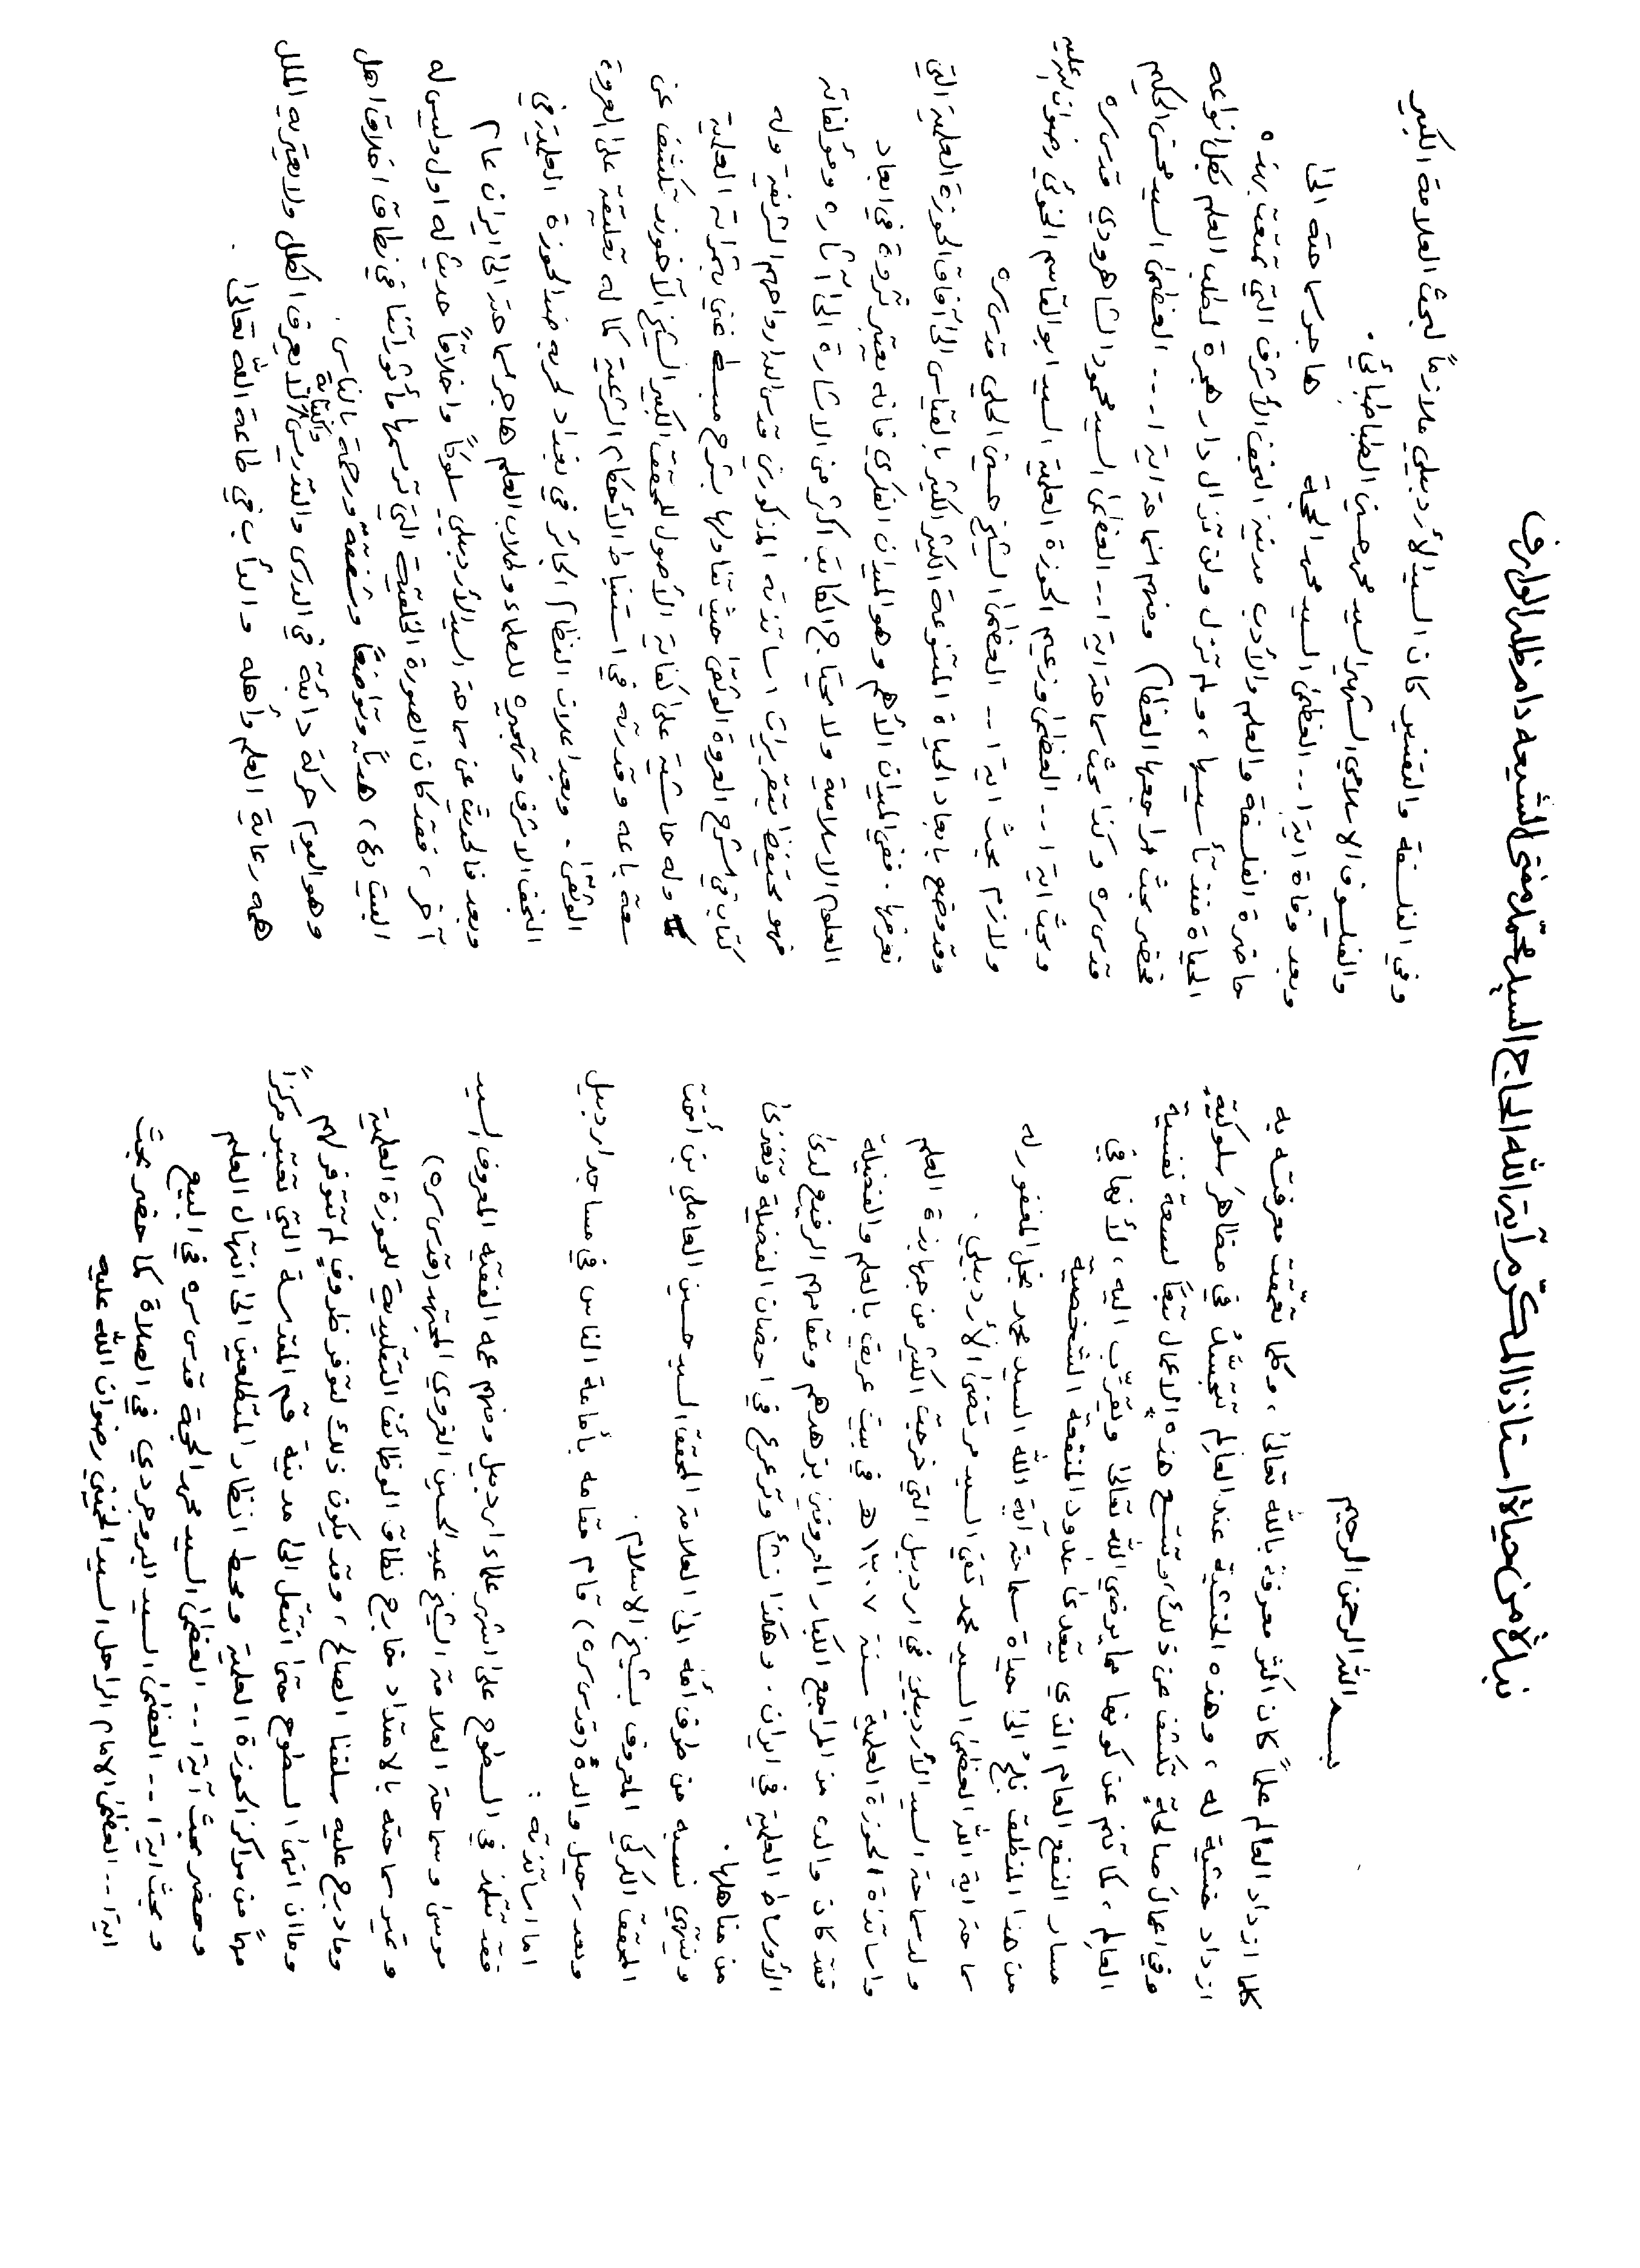 نبذة من حياة استاذنا المكرّم آية الله الحاج السيد محمّد مفتي الشيعه دام ظله الوارف
بسم الله الرحمن الرحيم
كلما ازداد العالم علماً كان اكثر معرفة بالله تعالى ، وكلما تعمّقت معرفته به
ازداد خشية له ، وهذه الخشية عند العالِم تتجسّدُ في مظاهرَ سلوكيّةٍ
وفي اعمالَ صالحةٍ تكشف عن ذلك ، وتتسع هذه الاعمال تبعاً لسعة نفسية
العالِم ، كما تنم عن كونها مما يرضي الله تعالى وتقرّب اليه ، لأنها في
مسار النفع العام الذي يتعدى حدود المنفعة الشخصية
من هذا المنطلق نلجُ الى حياة سماحة آية الله السيد محمد نجل المغفور له
سماحة اية الله العظمى السيد محمد تقي السيد مرتضى الأردبيلي .
ولد سماحة السيد الأردبيلي في اردبيل التي خرجت الكثير من جهابذة العلم
واساتذة الحوزة العلمية سنة ١٣٠٧ هـ في بيت عريق بالعلم والفضيلة
فقد كان والده من المراجع الكبار المعروفين بزهدهم وعقامهم الرفيع لدى
الأوساط العلمية في ايران . وهكذا نشأ وترعرع في احضان الفضيلة وتغذى
من مناهلها .
وينتهي نسبه من طرف أُمّه الى العلامة المحقق السيد حسين العاملي بن أُخت
المحقق الكركي المعروف بشيخ الاسلام .
وبعد رحيل والده (قدس سره) قام مقامه بأمامة الناس في مساجد اردبيل
اما اساتذته :
فقد تتلمذ في السطوح على اشهر علماء اردبيل ومنهم عمه الفقيه المعروف السيد
موسى وسماحة العلامة الشيخ عبد الحسين الغروي المجتهد (قدس سره)
وتميز سماحته بالامتداد خارج نطاق الوظائف التقليدية للحوزة العلمية
ومادرج عليه سلفنا الصالح ، وقد يكون ذلك لتوفر ظروفٍ لم تتوفر لهم
وماان انهى السطوح حتى انتقل الى مدينة قم المقدسة التي تعتبر مركزاً
مهماً من مراكز الحوزة العلمية ومحط انظار المتطلعين الى انتهال العلم
وحضر بحث آية ا.. العظمى السيد محمد الحجة قدس سره في البيع
وبحث اية ا.. العظمى السيد البروجردي في الصلاة كما حضر بحث
اية ا.. العظمى الامام الراحل السيد الخميني رضوان الله عليه
وفي الفلسفة والتفسير كان السيد الأردبيلي ملازماً لبحث العلامة الكبير
والفيلسوف الاسلامي الشهير السيد محمد حسين الطباطبائي .
وبعد وفاة اية ا.. العظمى السيد محمد الحجة هاجر سماحته الى
حاضرة الفلسفة والعلم والأدب مدينة النجف الأشرف التي تمتعت بهذه
الحياة منذ تأسيسها ، ولم تزل ولن تزال دار هجرة لطلب العلم بكل انواعه
فحضر بحث مراجعها العظام ، ومنهم سماحة اية ا... العظمى السيد محسن الحكيم
قدس سره وكذا بحث سماحة اية ا.. العظمى السيد محمود الشاهرودي قدس سره
وبحث اية ا.. العظمى وزعيم الحوزة العلمية السيد ابو القاسم الخوئي رضوان الله عليه
ولازم بحث اية ا.. العظمى الشيخ حسين الحلي قدس سره
وقد وضع بابعاد الحياة المتنوعة الكثير الكثير بالقياس الى آفاق الحوزة العلمية التي
نعرفها . ففي الميدان الأهم وهو الميدان الفكري فانه يعتبر ثروة في ابعاد
العلوم الاسلامية ولا يحتاج الكاتب اكثر من الاشارة الى آثاره ومؤلفاته
فهو محتفظ بتقريرات اساتذته المذكورين قدس الله ارواحهم الشريفة وله
كتاب في شرح العروة الوثقى حيث تناولها بشرح مبسط غني بثمراته العلمية
وله حاشية على كفاية الأصول للمحقق الكبير الشيخ الآخوند تكشف عن
سعة باعه وقدرته في استنباط الأحكام الشرعية كما له تعليقة على العروة
الوثقى . وبعد اعلان النظام الجائر في بغداد لحربه ضد الحوزة العلمية في
النجف الاشرف وتهجيره للعلماء وطلاب العلم هاجر سماحته الى ايران عام
وبعد فالحديث عن سماحة السيد الأردبيلي سلوكاً واخلاقاً حديث له اول وليس له
آخر ، فقد كان الصورة الخلقية التي ترسمها مأثوراتنا في نطاق اخلاق اهل
البيت (ع) ، هدياً وتواضعاً وشفقة ورحمة بالناس .
وهو اليوم حركة دائبة في الدرس والتدريس والكتابة لا يعرف الكلل ولا يعتريه الملل
همه رعاية العلم وأهله والدأب في طاعة الله تعالى .